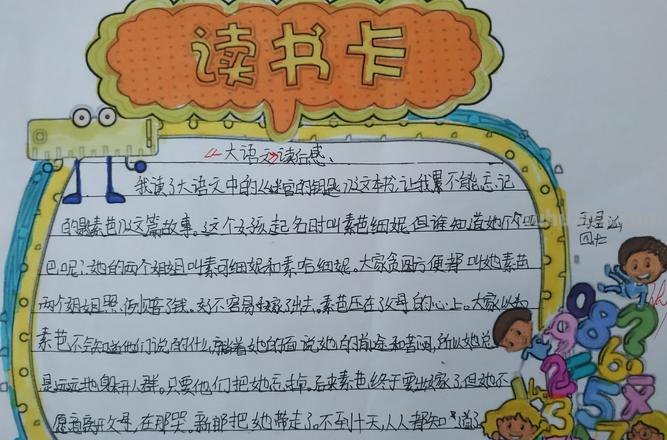 读书卡
《大语文》读后感、
我读了大语文中的《迷宫的钥匙》这本书，让我最不能忘记
的是素芭》这篇故事。这个女孩起名时叫素芭细妮，但谁知道她
巴呢？她的两个姐姐叫素可细妮和素布细妮。大家贪图方便都叫她素芭
两个姐姐照例陪了钱。好不容易嫁了出去。素芭压在父母的心上。大家以为
素芭不会知道他们说的什么，就当着她的面说她的前途和苦闷，所以她总
是远远地躲开人群。只要他们把她忘掉。后来素芭终于要出嫁了但她不
愿意离开父母，在那哭。新郎把她带走了。不到十天，人人都知道